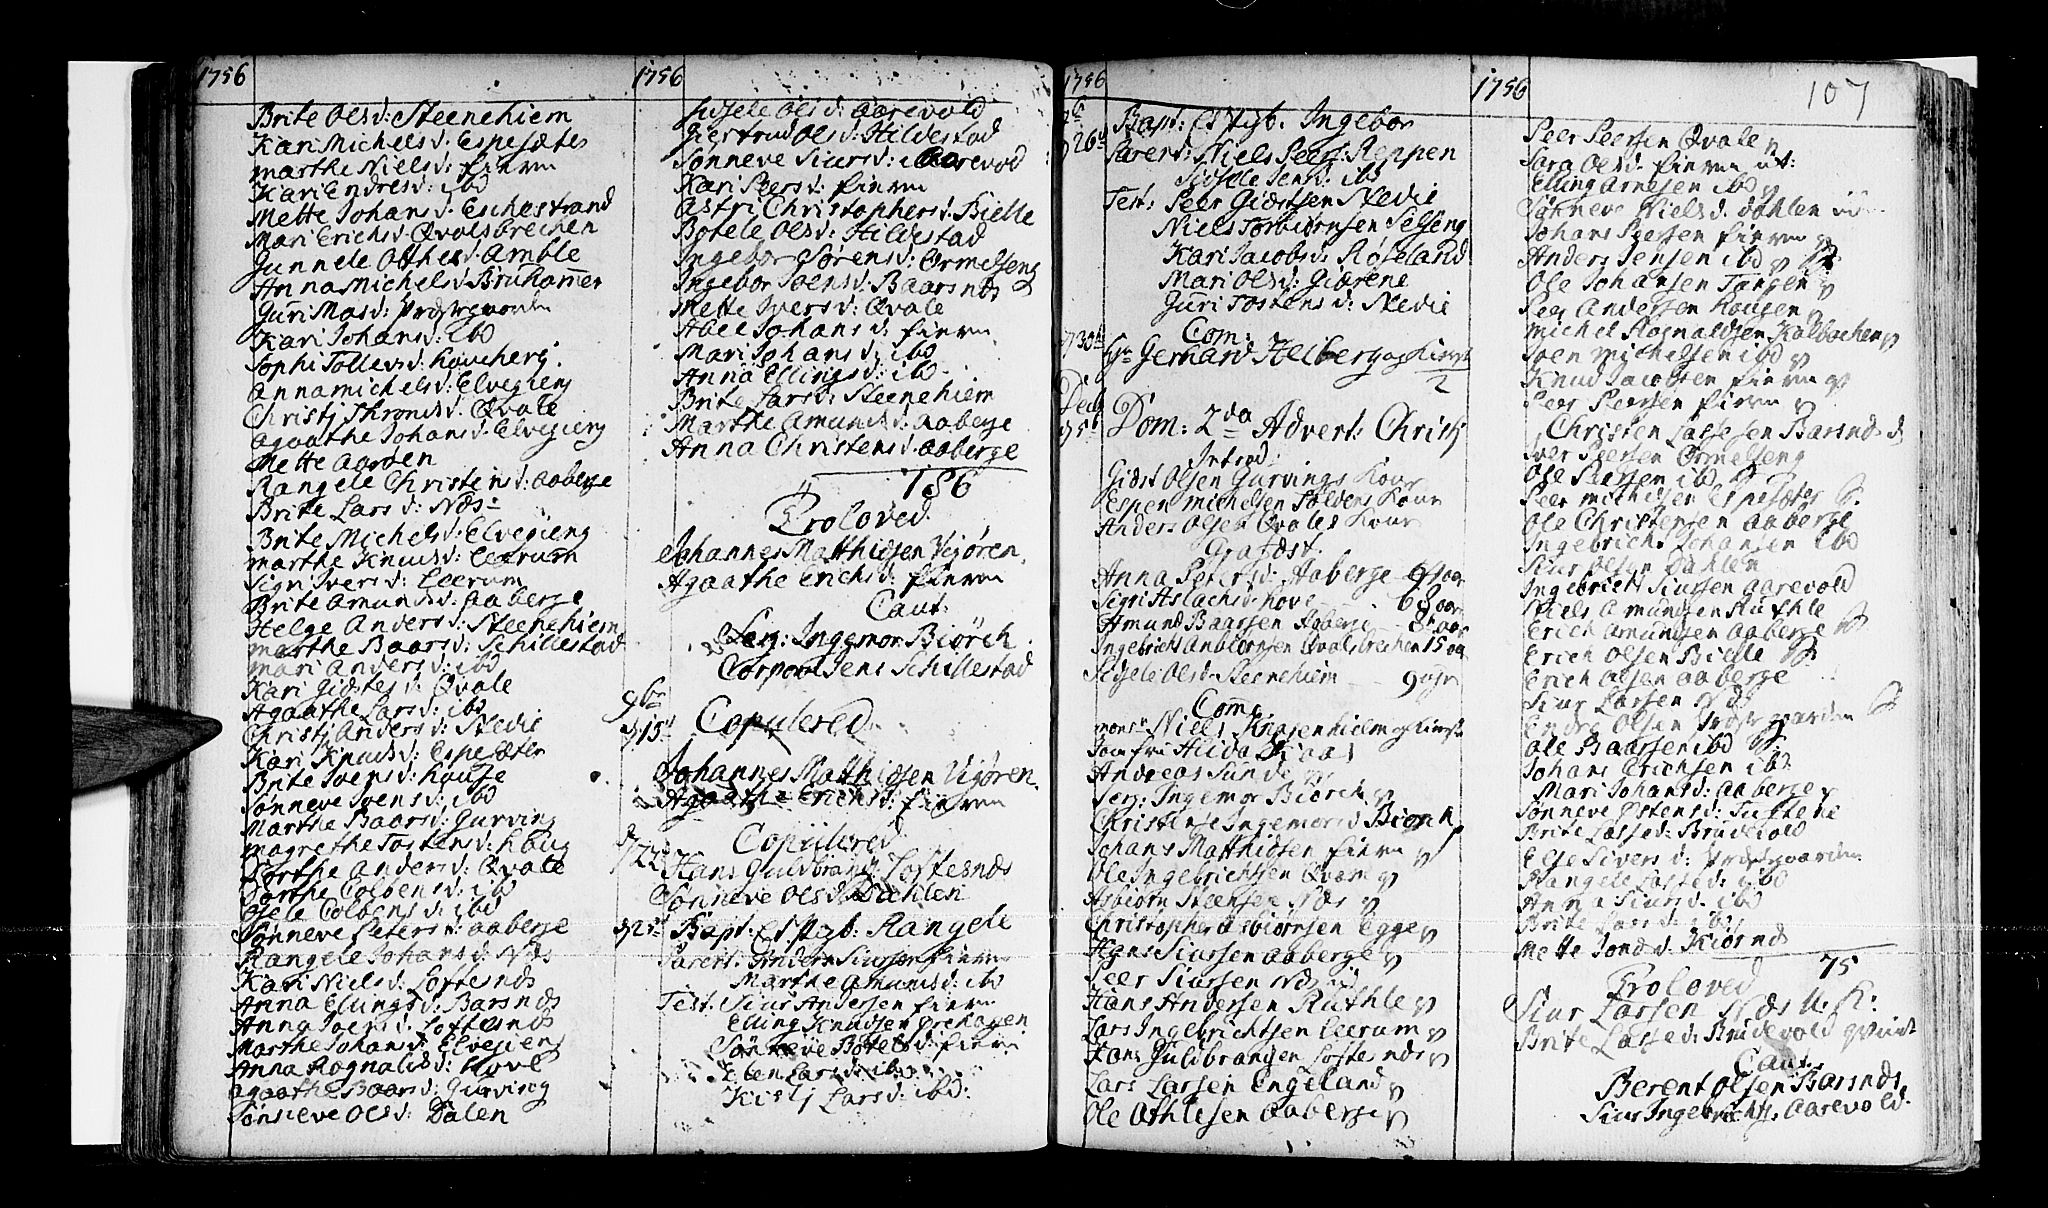 1756
Brite Olsd: Steenehiem
Kari Michelsd: Espesæter
Marthe Nielsd: fieren
Kari Endresd: ibd
Mette Johansd: Eschestrand
Mari Erichsd: Qvalsbrechen
Gunnele Othesd: Amble
Anna Michelsd: Bruhammer
Guri Masd: Præstegaarden
Kari Johansd: ibd
Sophi Tollevsd:
Anna Michelsd: Elvegieng
Christj Thronsd: Qvale
Agaathe Johansd: Elvegieng
Mette Aarøen
Rangele Christensd: Aaberge
Brite Larsd: Næs
Brite Michelsd: Elvegieng
Marthe Knudsd: Leerum
Sigri Iversd: Leerum
Brite Amundsd: Aaberge
Helge Andersd: Steenehiem
Marthe Baarsd: Schillestad
Mari Andersd: ibd
Kari Giæstesd: Qvale
Agaathe Larsd: ibd
Christj Andersd: Stedie
Kari Knudsd: Espesæter
Brite Joensd: Houge
Sønneve Joensd: ibd
Marthe Baarsd: Gurving
Magrethe Tostensd: Houg
Dorthe Andersd: Qvale
Dorthe Colbensd: ibd
Osele Colbensd: ibd
Sønneve Petersd: Aaberge
Rangele Johansd: Næs
Kari Nielsd: Loftesnæs
Anna Ellingsd: Barsnæs
Anna Joensd: Loftesnæs
Marthe Johansd: Elvegieng
Anna Rognaldsd: Hove
Agaathe Baarsd: Gurving
Sønneve Olsd: Dalen
1756
Sidsele Olsd: Aarevold
Giertrud Olsd: Hildestad
Sønneve Siursd: Aarevold
Kari Peersd: fieren
Astri Christophersd: Bielle
Botele Olsd: Hildestad
Ingebor Sørensd: Ormelseng
Ingebor Joensd: Baarsnæs
Mette Iversd: Qvale
Abel Johansd: fieren
Mari Johansd: ibd
Anna Ellingsd: ibd
Brite Larsd: Steenehiem
Marthe Amundsd: Aaberge
Anna Christensd: Aaberge
186
Troloved
Johannes Matthiesen Vigøren
Agaathe Erichsd: fieren
Caut:
Serj: Ingemor Biørch
Corporal Jens Schillestad
9br
15 Copulered
Johannes Matthiesen Vigøren
Agaathe Erichsd: fieren
Copulered
22 Hans Guldbrands: Loftesnæs
Sønneve Olsd: Dahlen
Bapt: Rangele
Parent: Anders Siursen fieren
Marthe Amundsd: ibd
Test: Siur Andersen fieren
Elling Knudsen
Sønneve Botelsd: fieren
Elen Larsd: ibd
Kistj Larsd: ibd:
1756
26 Bapt: Ingebor
Parent: Niels Peers: Reppen
Sidsele Jensd: ibd
Test: Peer Giæstsen Stedie
Niels Torbiørnsen Selseng
Kari Jacobsd: Røseland
Mari Olsd: Giærene
Guri Tostensd: Stedie
Com:
30 Hr Gerhard Heiberg og
2
Dec
5 Dom: 2da Advent: Christj
Introd:
Giæst Olsen Gurvings Kone
Espen Michelsen Kone
Anders Olsen Qvales Kone
Grafæst:
Anna Petersd: Aaberge
Sigri Aslachsd: Hove 68 aar
Amund Baarsen Aaberge
Ingebricht Anbiørnsen Qvalsbrechen 15
Sidsele Olsd: Steenehiem 9 uger
Com:
Mons: Niels Knagenhielm og
Jomfru Kaas
Andreas Sunde
Serj: Ingemor Biørch
Christense Ingemorsd Biørch
Johans Matthiesen fieren
Ole Ingebrichtsen Qvam
Asbiørn Steensen Næs
Christopher Asbiørsen Egge
Hans Siursen Aaberge
Peer Siursen Næs
Hans Andersen Ruthle
Lars Ingebrichtsen Leerum
Hans Guldbrangen Loftesnæs
Lars Larsen Engeland
Ole Othlesen Aaberge
1756
107
Peer Peersen Qvale
Sara Olsd: fieren
Elling Arnesen ibd
Sønneve Nielsd: Dahlen
Johans Peersen fieren
Anders Jensen ibd
Ole Johansen Tangen
Peer Andersen Hougen
Michel Rognaldsen Kalbachen
Joen Michelsen ibd
Knud Jacobsen fieren
Peer Peersen fieren
Christen Lassesen Barsnæs
Iver Peersen Ormelseng
Ole Peersen ibd
Peer Michelsen Espesæter
Ole Christensen Aaberge
Ingebricht Johansen ibd
Siur Olsen Dahlen
Ingebricht Siursen Aarevold
Niels Amundsen Ruthle
Erich Amundsen Aaberge
Erich Olsen Bielle
Erich Olsen Aaberge
Siur Larsen Næs
Endre Olsen Præstgaarden
Ole Baarsen ibd
Johans Erichsen ibd
Mari Johansd: Aaberge
Sønneve Østensd: Tuftene
Brite Lassed: Brudevold
Else Siversd: Præstgaarden
Rangele Lassed: ibd
Anna Siursd: ibd
Brite Larsd: ibd
Mette Jonsd: Kiørnæs
75
Troloved
Siur Larsen Næs U: K:
Brite Lassed: Brudevold
Caut:
Berent Olsen Barsnæs
Siur Ingebrichts: Aarevold.